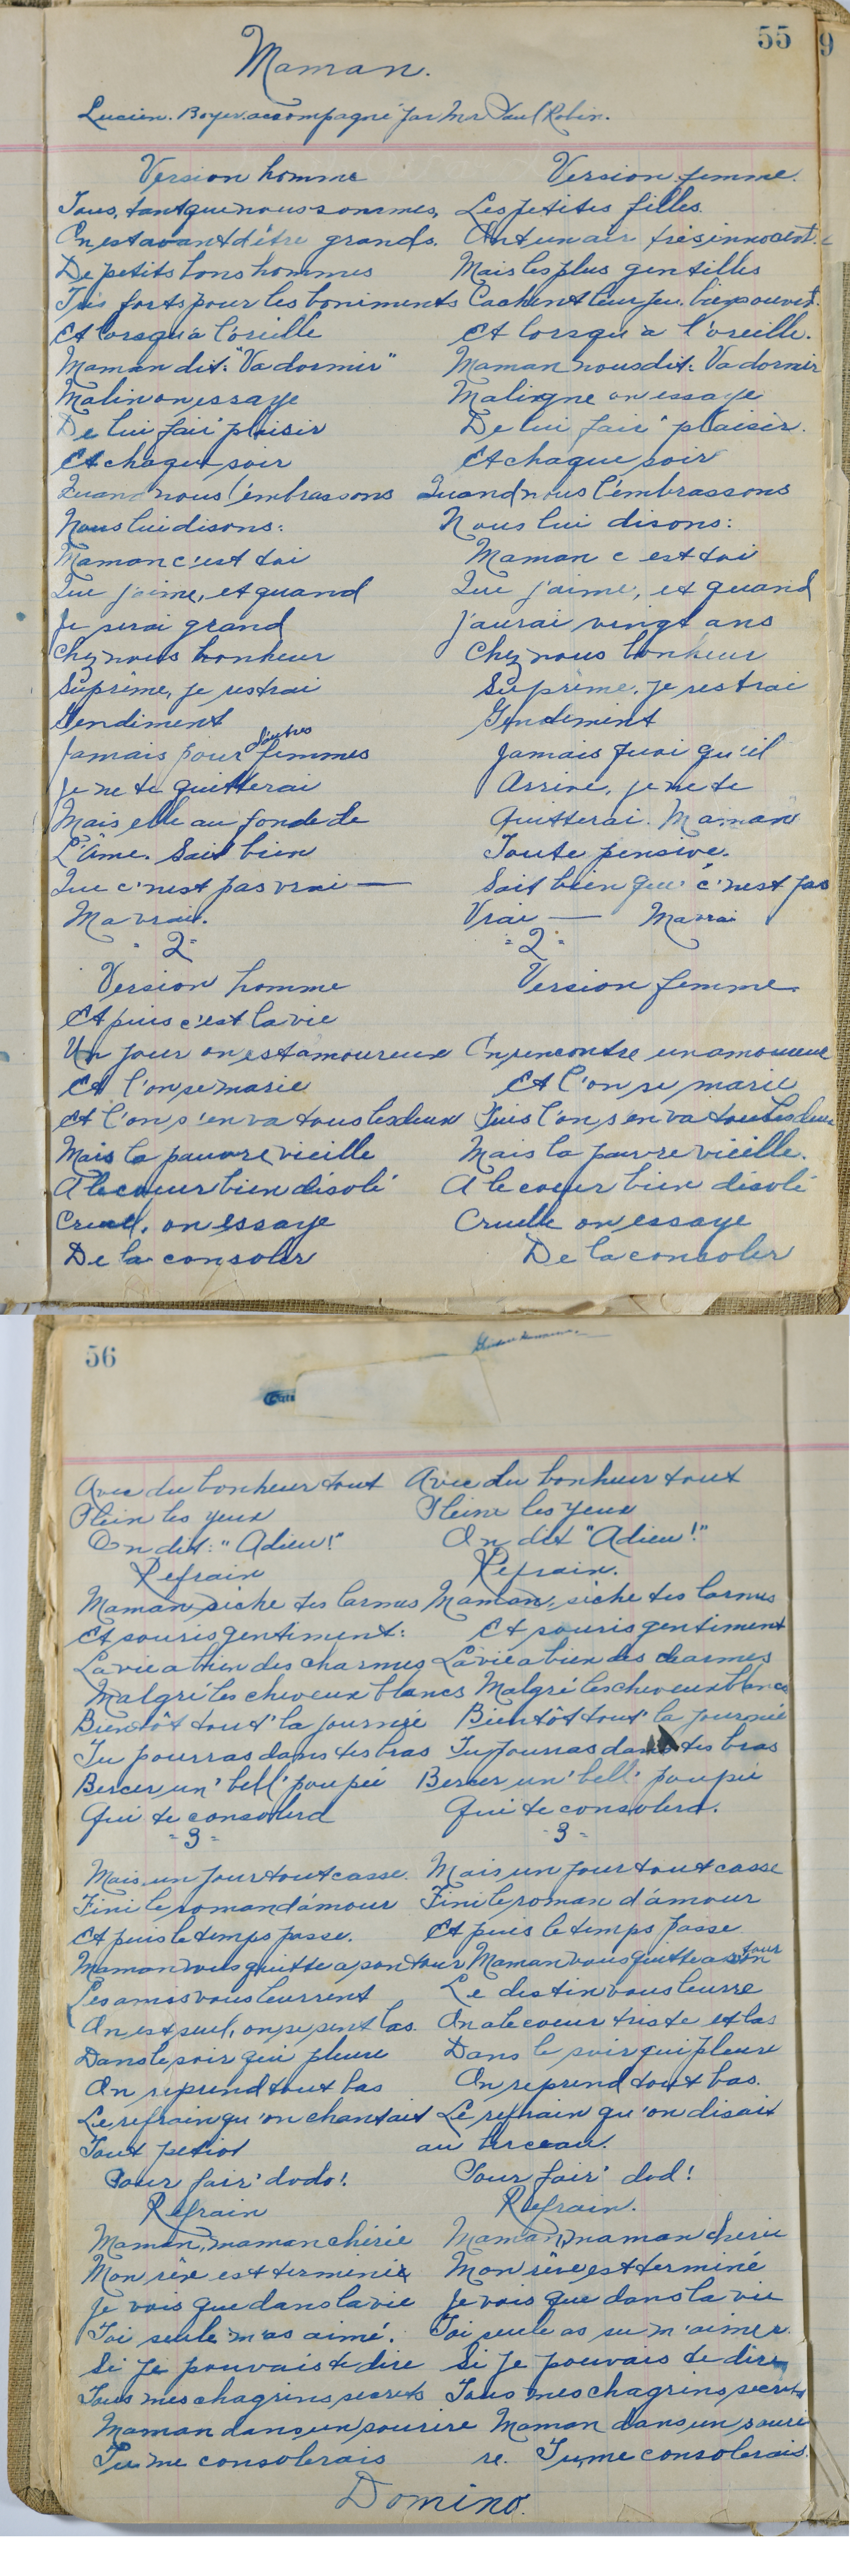 55
9
Maman.
Lucien. Boyer. accompagné par Mr Paul Robin.
Version homme
Tous, tant que nous sommes,
On est avant d'être grands.
De petits bons hommes
Très forts pour les boniments
Et lorsqu'à l'oreille
Maman dit: "Va dormir"
Malin on essaye
De lui fair' plaisir
Et chaque soir
Quand nous l'embrassons
Nous lui disons:
Maman c'est toi
Que j'aime, et quand
Je serai grand
Chez nous bonheur
Suprême, je restrai
Gendiment
Jamais pour d'autres femmes
Je ne te quitterai
Mais elle au fond de
L'âme. Sait bien
Que c'nest pas vrai —
Ma vrai.
"2"
Version homme
Et puis c'est la vie
Un jour on est amoureux
Et l'on se marie
Et l'on s'en va tous les deux
Mais la pauvre vieille
A le coeur bien désolé
Cruel, on essaye
De la consoler
Version femme.
Les petites filles
Ont un air très innocent.
Mais les plus gentilles
Cachent leur jeu bien souvent.
Et lorsqu'à l'oreille.
Maman nous dit: Va dormir
Maligne on essaye
De lui fair' plaisir.
Et chaque soir
Quand nous l'embrassons
Nous lui disons:
Maman c est toi
Que j'aime, et quand
J'aurai vingt ans
Chez nous bonheur
Suprême, je restrai
Gendiment
Jamais quoi qu'il
Arrive, je ne te
Quitterai. Maman
Toute pensive.
Sait bien que c'nest pas
Vrai — Ma vrai
"2"
Version femme.
On rencontre un amoureux
Et l'on se marie
Puis l'on s'en va tous les deux
Mais la pauvre vieille.
A le coeur bien désolé
Cruelle on essaye
De la consoler
56
Avec du bonheur tout
Plein les yeux
On dit: "Adieu!"
Refrain
Maman sèche tes larmes
Et souris gentiment:
La vie a bien des charmes
Malgré les cheveux blancs
Bientôt tout' la journée
Tu pourras dans tes bras
Bercer un' bell' poupée
Qui te consolera
"3"
Mais un jour tout casse.
Fini le roman d'amour
Et puis le temps passe.
Maman vous quitte a son tour
Les amis vous leurrent
On est seul, on se sent las.
Dans le soir qui pleure
On reprend tout bas
Le refrain qu'on chantait
Tout petiot
Pour fair' dodo!
Refrain
Maman, maman chérie
Mon rêve est terminé
Je vois que dans la vie
Toi seule m'as aimé.
Si je pouvais te dire
Tous mes chagrins secrets
Maman dans un sourire
Tu me consolerais
Avec du bonheur tout
Pleine les yeux
On dit "Adieu!"
Refrain.
Maman, sèche tes larmes
Et souris gentiment
La vie a bien des charmes
Malgré les cheveux blancs
Bientôt tout' la journée
Tu pourras dans tes bras
Bercer un' bell' poupée
Qui te consolera.
"3"
Mais un jour tout casse
Fini le roman d'amour
Et puis le temps passe
Maman vous quitte a son tour
Le destin vous leurre
On a le coeur triste et las
Dans le soir qui pleure
On reprend tout bas.
Le refrain qu'on disait
au berceau.
Pour fair' dod!
Refrain.
Maman, maman chérie
Mon rêve est terminé
Je vois que dans la vie
Toi seule as su m'aimer.
Si je pouvais te dire
Tous mes chagrins secrets
Maman dans un souri
re. Tu me consolerais.
Domino.